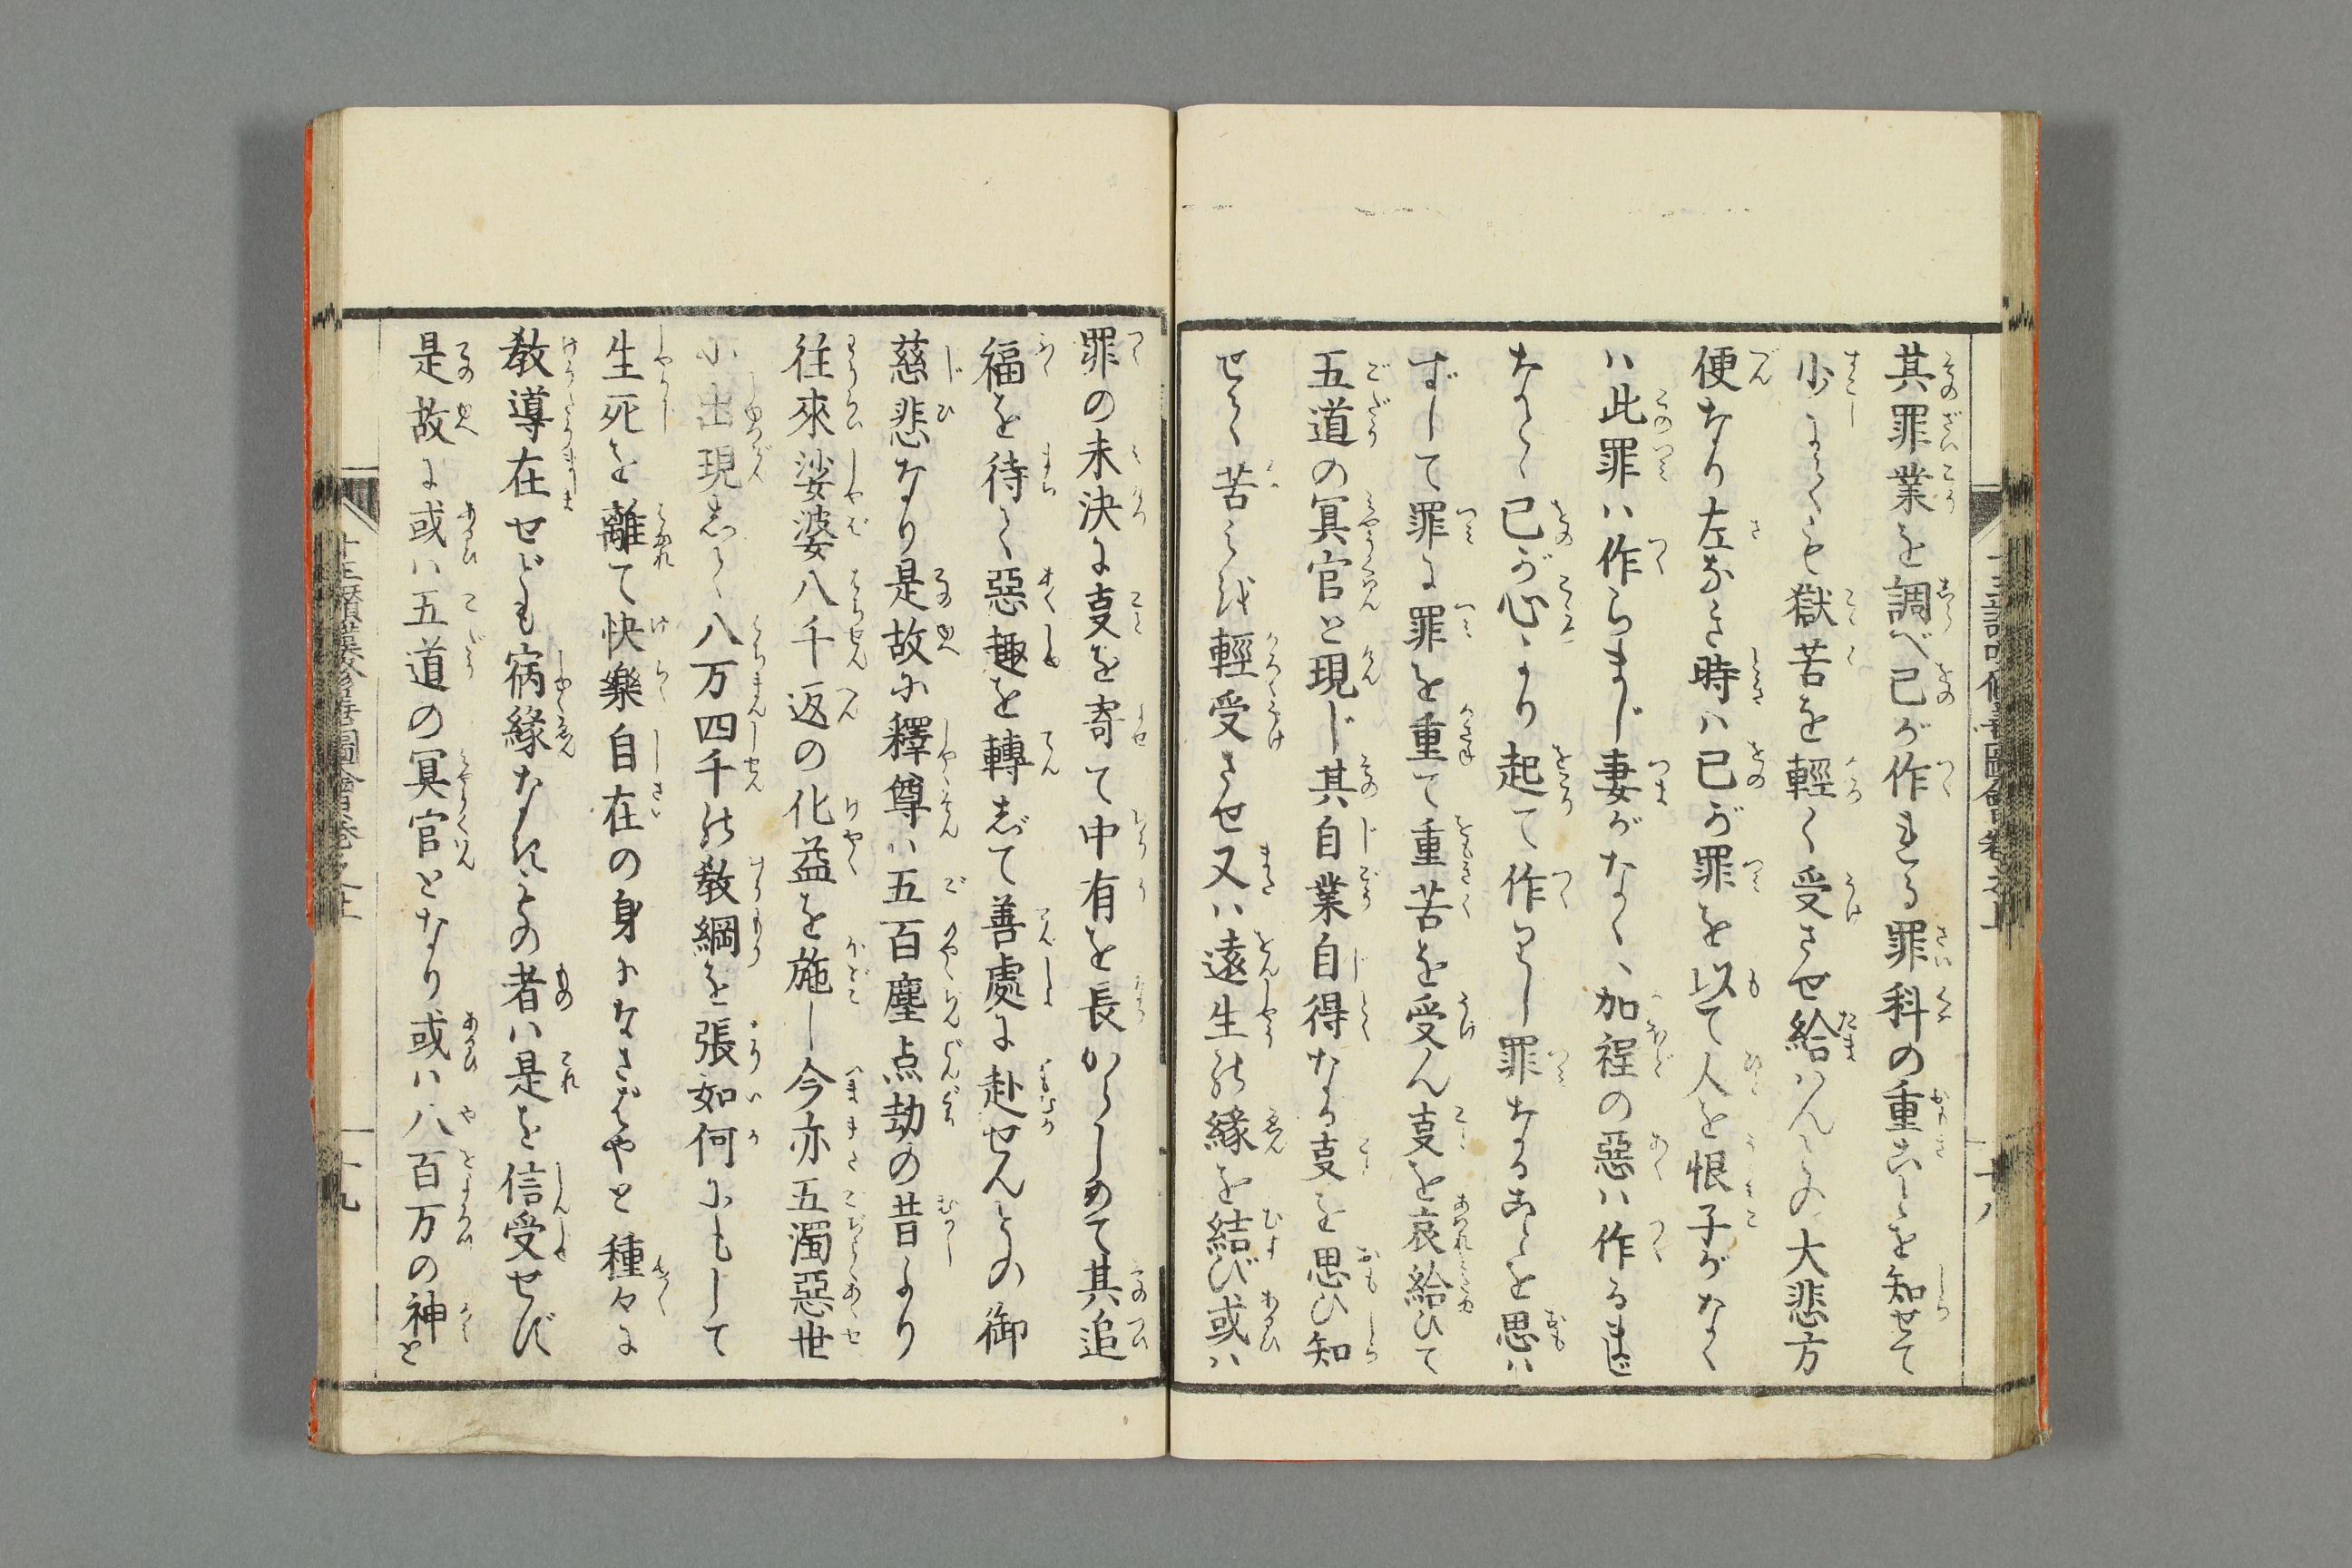 其罪業を調べ己が作れる罪科の重きことを知せて
少しにても獄苦を輕く受させ給はんとの大悲方
便なり左なき時ハ己が罪を以て人を恨子がなく
ハ此罪ハ作らまじ妻がなくハ加程の惡ハ作るまじ
なんど己が心より起て作りし罪なることを思ハ
ずして罪に罪を重て重苦を受ん叓を哀給ひて
五道の冥官と現じ其自業自得なる叓を思ひ知
せて苦しみを輕受させ又ハ遠生の縁を結び或ハ
罪の未決に叓を寄て中有を長からしめて其追
福を待て惡趣を轉じて善處に赴せんとの御
慈悲なり是故に釋尊ハ五百塵点劫の昔より
往來娑婆八千返の化益を施し今亦五濁惡世
に出現まして八万四千の教綱を張如何にもして
生死を離て快樂自在の身になさばやと種々に
教導在せども宿縁なきの者ハ是を信受せず
是故に或ハ五道の冥官となり或ハ八百万の神と
十九
十八